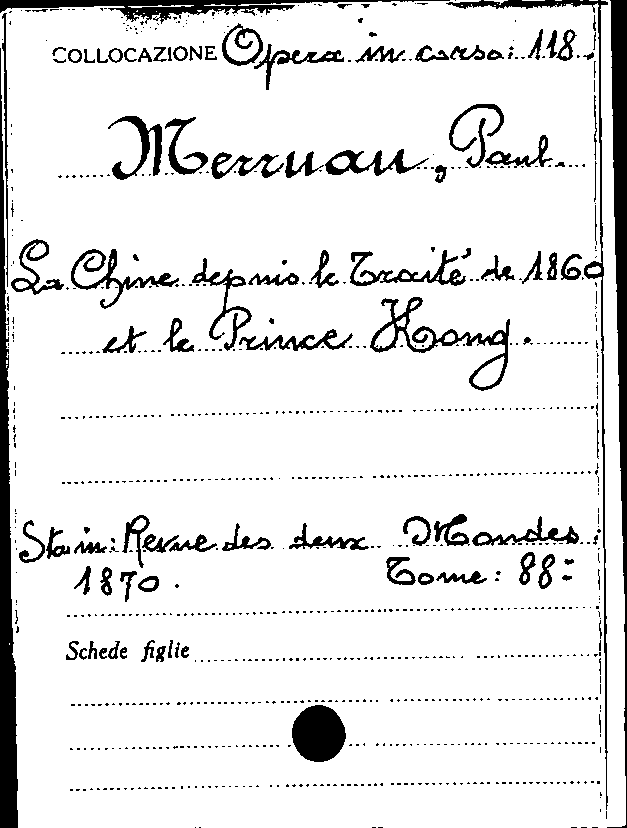 COLLOCAZIONE Opera in corso: 118.
Merruau, Paul.
La Chine depuis le Traité de 1860
et le Prince Kong.
Sta in: Revue des deux Mondes:
1870. Tome: 88:
Schede figlie